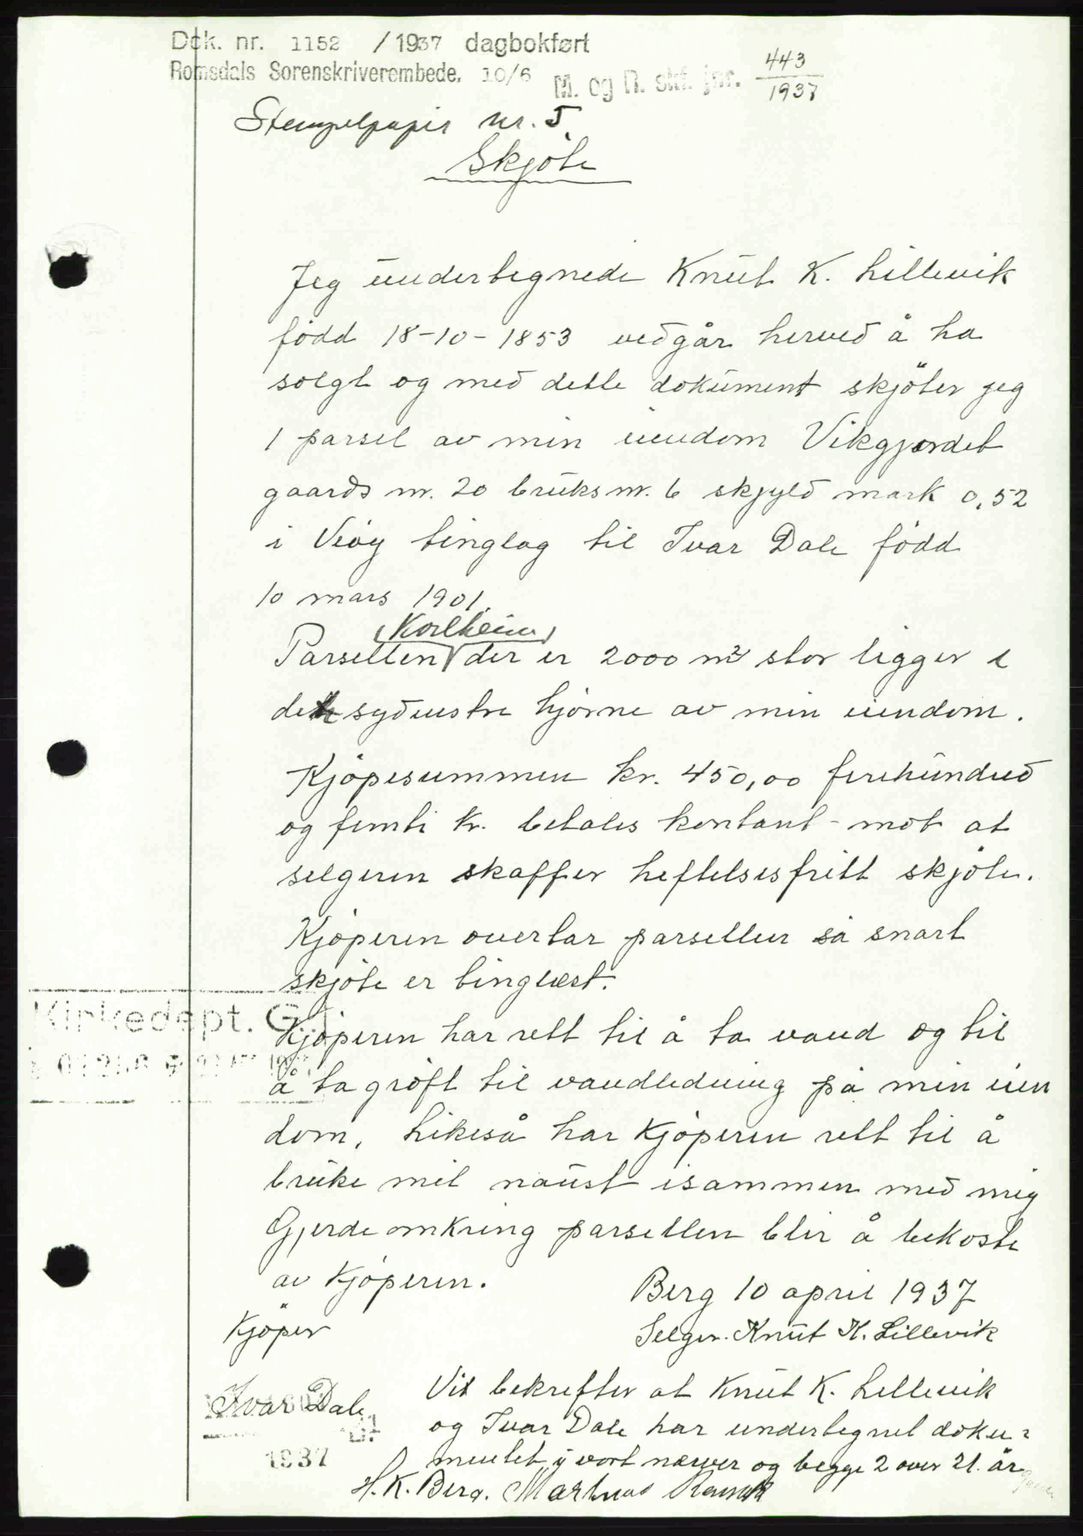 Dok. nr. 1152 /1937 dagbokført
Romsdals Sorenskriverembede. 10/6 M. og R. skf. jnr. 443/1937
Stempelpapir nr. 5.
Skjöte
Jeg undertegnede Knut K. Lillevik
född 18-10-1853 vedgår herved å ha
solgt og med dette dokument skjöter jeg
1 parsel av min eiendom Vikgjærdet
gaards nr. 20 bruks nr. 6 skyld mark 0,52
i Veöy tinglag til Ivar Dale född
10 mars 1901.
Parsellen (Kvilheim) der er 2000 m² stor ligger i
det sydvestre hjörne av min eiendom.
Kjöpesummen kr. 450,00 firehundred
og femti kr. betales kontant mot at
selgeren skaffer heftelsesfritt skjöte.
Kjöperen overtar parsellen så snart
skjöte er tinglæst.
Kirkedept. G.
Kjöperen har rett til å ta vand og til
å ta gröft til vandledning på min eien
dom. Likeså har Kjöperen rett til å
bruke mit naust isammen med mig
Gjerde omkring parsellen blir å bekoste
av Kjöperen.
Berg 10 april 1937
Kjöper
Selger. Knut K. Lillevik
Ivar Dale
1937
Vit bekrefter at Knut K. Lillevik
og Ivar Dale har undertegnet doku-
mentet i vort nærver og begge 2 over 21. år
H. K. Berg. Martinus